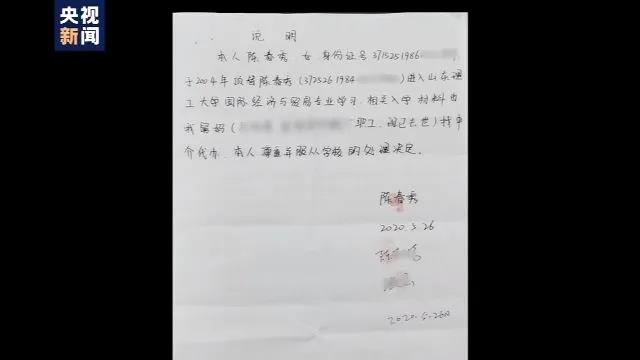 央视
新闻
说明
本人陈春秀 女 身份证号 3715251986
于2004年顶替陈春秀(372526 1984 )进入山东理
工大学国际经济与贸易专业学习,相关入学材料由
我舅妈( 职工,现已去世)找中
介代办,本人尊重并服从学校的处理决定。
陈春秀
2020.5.26
2020.5.26日